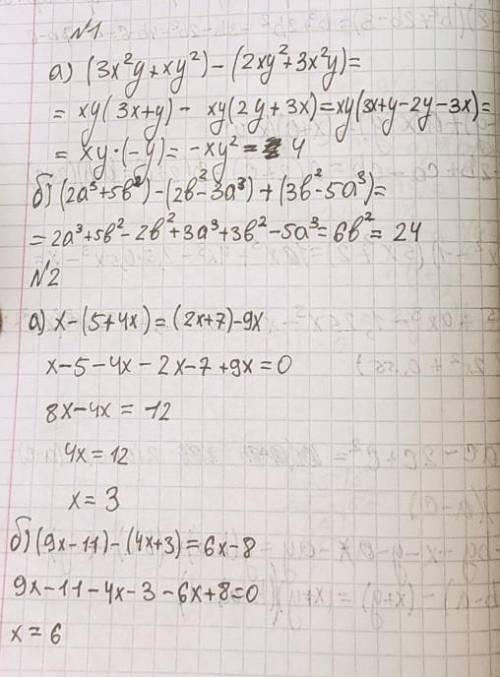 №1
а) (3x²y+xy²)-(2xy²+3x²y)=
= xy(3x+y) - xy(2y+3x)=xy(3x+y-2y-3x)=
= xy·(-y)= -xy² = 4
б) (2a³+5b²)-(2b²-3a³)+(3b²-5a³)=
=2a³+5b²-2b²+3a³+3b²-5a³=6b²=24
№2
а) x-(5+4x)=(2x+7)-9x
x-5-4x-2x-7+9x=0
8x-4x = -12
4x=12
x=3
б) (9x-11)-(4x+3)=6x-8
9x-11-4x-3-6x+8=0
x=6